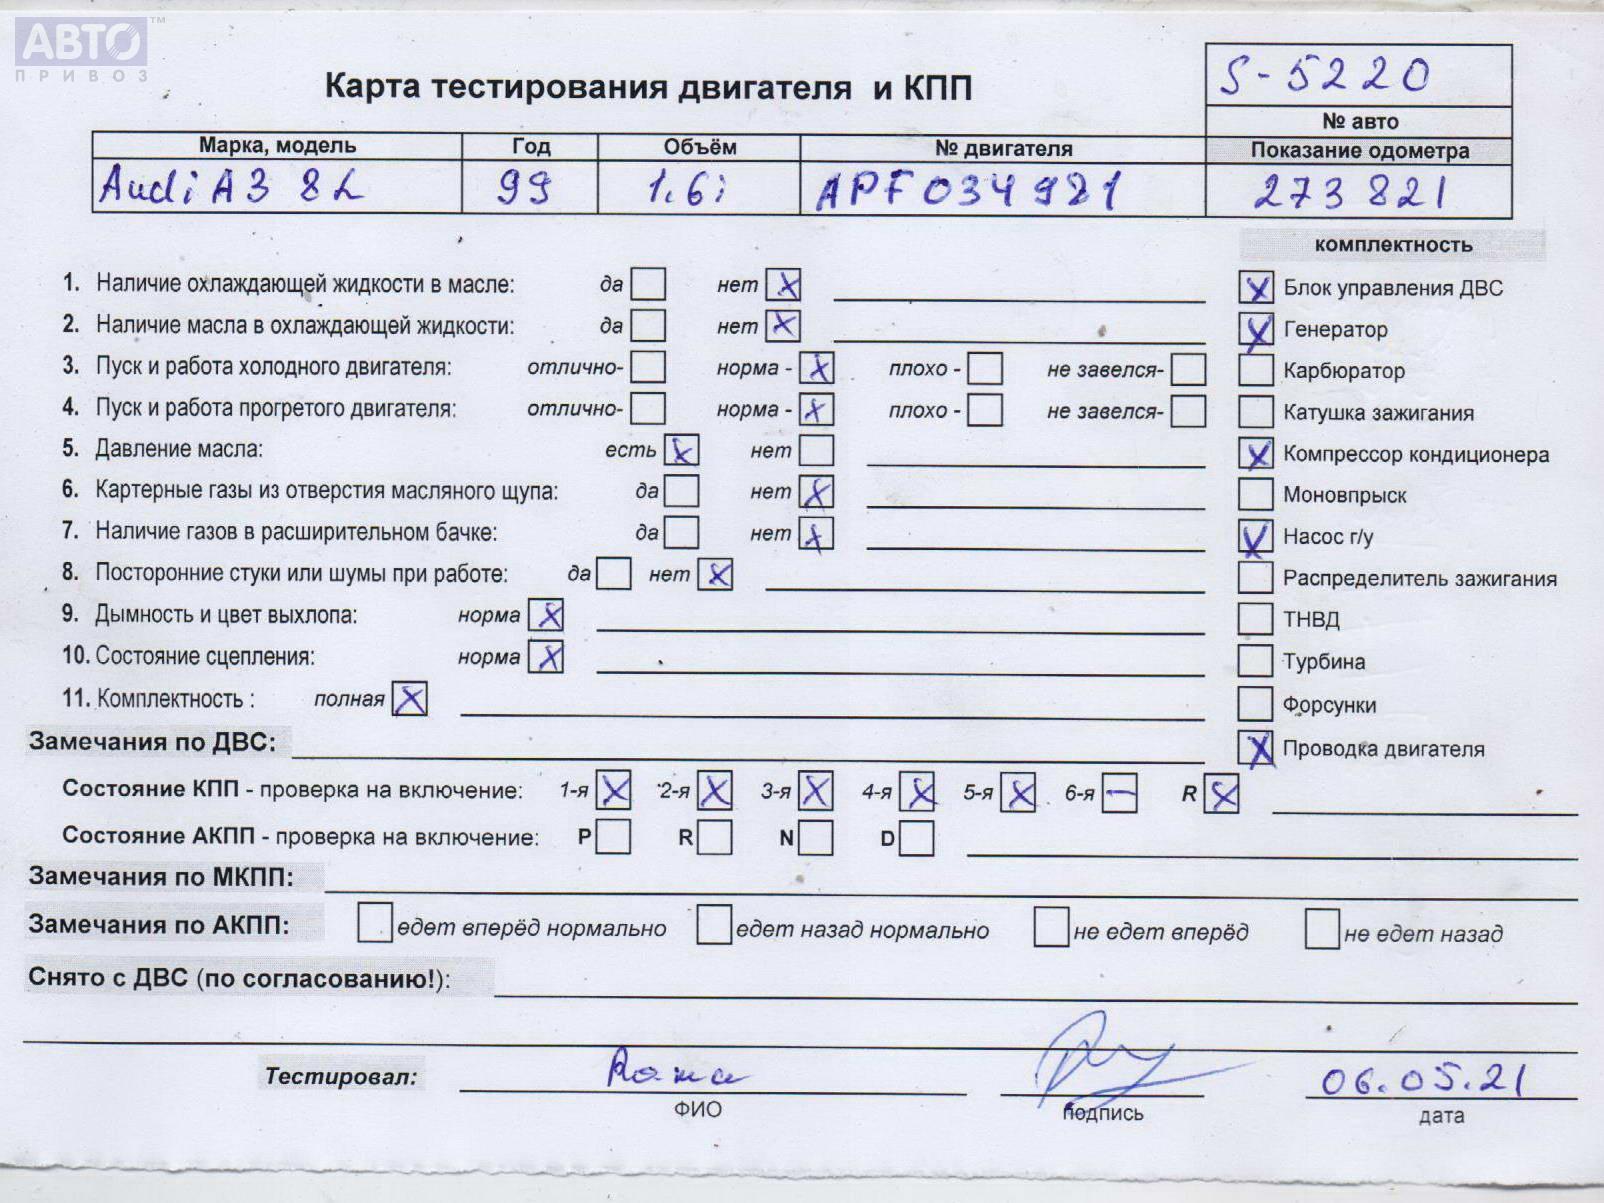 АВТО™
ПРИВОЗ
Карта тестирования двигателя и КПП
S-5220
№ авто
Марка, модель Год Объём № двигателя Показание одометра
Audi A3 8L 99 1.6i APF034921 273821
комплектность
1. Наличие охлаждающей жидкости в масле: да нет X
Блок управления ДВС X
2. Наличие масла в охлаждающей жидкости: да нет X
Генератор X
3. Пуск и работа холодного двигателя: отлично- норма - X плохо - не завелся-
Карбюратор
4. Пуск и работа прогретого двигателя: отлично- норма - X плохо - не завелся-
Катушка зажигания
5. Давление масла: есть X нет
Компрессор кондиционера X
6. Картерные газы из отверстия масляного щупа: да нет X
Моновпрыск
7. Наличие газов в расширительном бачке: да нет X
Насос г/у X
8. Посторонние стуки или шумы при работе: да нет X
Распределитель зажигания
9. Дымность и цвет выхлопа: норма X
ТНВД
10. Состояние сцепления: норма X
Турбина
11. Комплектность : полная X
Форсунки
Замечания по ДВС:
Проводка двигателя X
Состояние КПП - проверка на включение: 1-я X 2-я X 3-я X 4-я X 5-я X 6-я — R X
Состояние АКПП - проверка на включение: P R N D
Замечания по МКПП:
Замечания по АКПП: едет вперёд нормально едет назад нормально не едет вперёд не едет назад
Снято с ДВС (по согласованию!):
Тестировал: 06.05.21
ФИО подпись дата